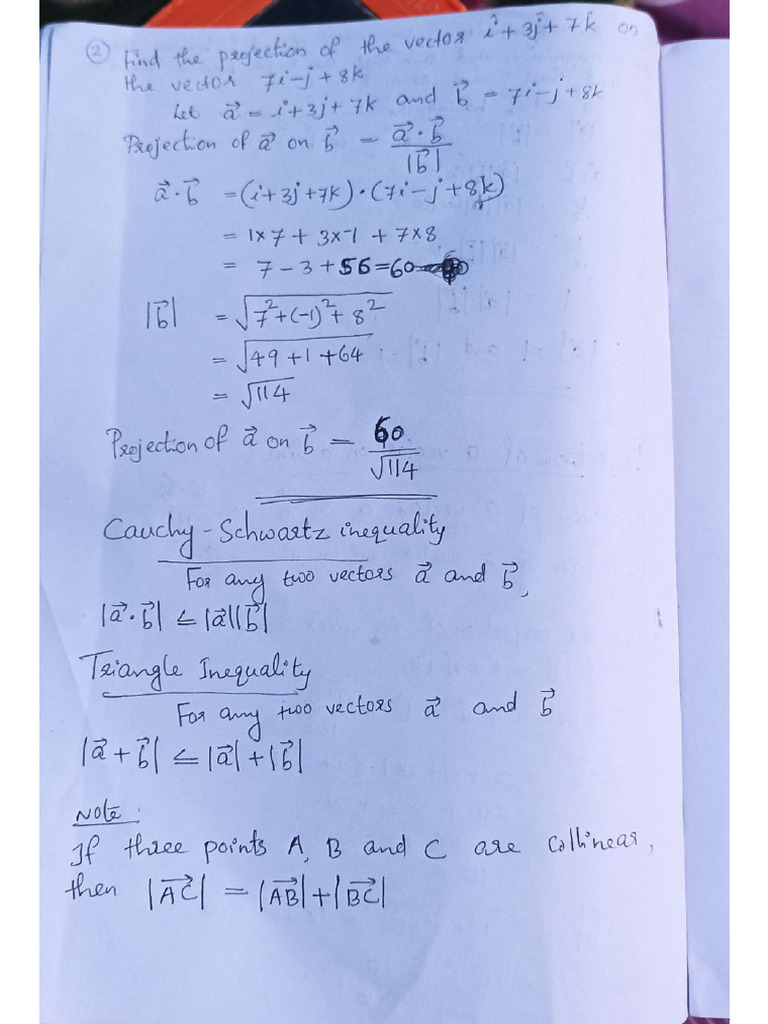 ② Find the projection of the vector i + 3j + 7k on
the vector 7i - j + 8k
Let a⃗ = i + 3j + 7k and b⃗ = 7i - j + 8k
Projection of a⃗ on b⃗ = a⃗·b⃗ / |b⃗|
a⃗·b⃗ = (i + 3j + 7k)·(7i - j + 8k)
= 1×7 + 3×-1 + 7×8
= 7 - 3 + 56 = 60
|b⃗| = √(7² + (-1)² + 8²)
= √(49 + 1 + 64)
= √114
Projection of a⃗ on b⃗ = 60 / √114
Cauchy - Schwartz inequality
For any two vectors a⃗ and b⃗,
|a⃗·b⃗| ≤ |a⃗||b⃗|
Triangle Inequality
For any two vectors a⃗ and b⃗
|a⃗ + b⃗| ≤ |a⃗| + |b⃗|
Note:
If three points A, B and C are collinear,
then |AC⃗| = |AB⃗| + |BC⃗|